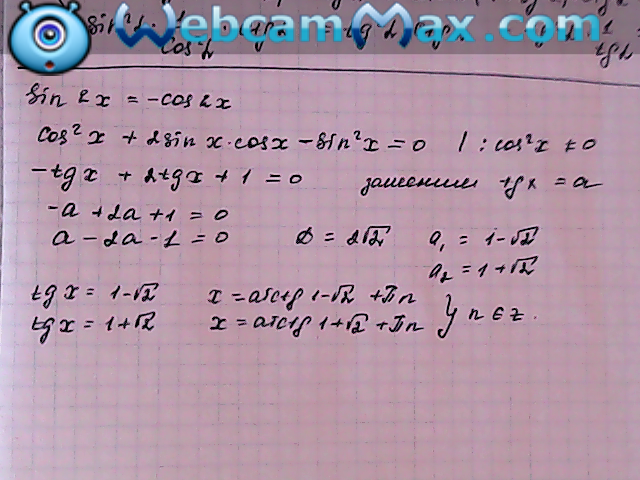 WebcamMax.com
sin 2x = -cos 2x
cos²x + 2sin x·cosx - sin²x = 0 / : cos²x ≠ 0
-tgx + 2tgx + 1 = 0 заменим tgx = a
-a + 2a + 1 = 0
a - 2a - 1 = 0 D = 2√2 a₁ = 1-√2
a₂ = 1+√2
tgx = 1-√2 x = arctg 1-√2 + πn
tgx = 1+√2 x = arctg 1+√2 + πn } n ∈ z.